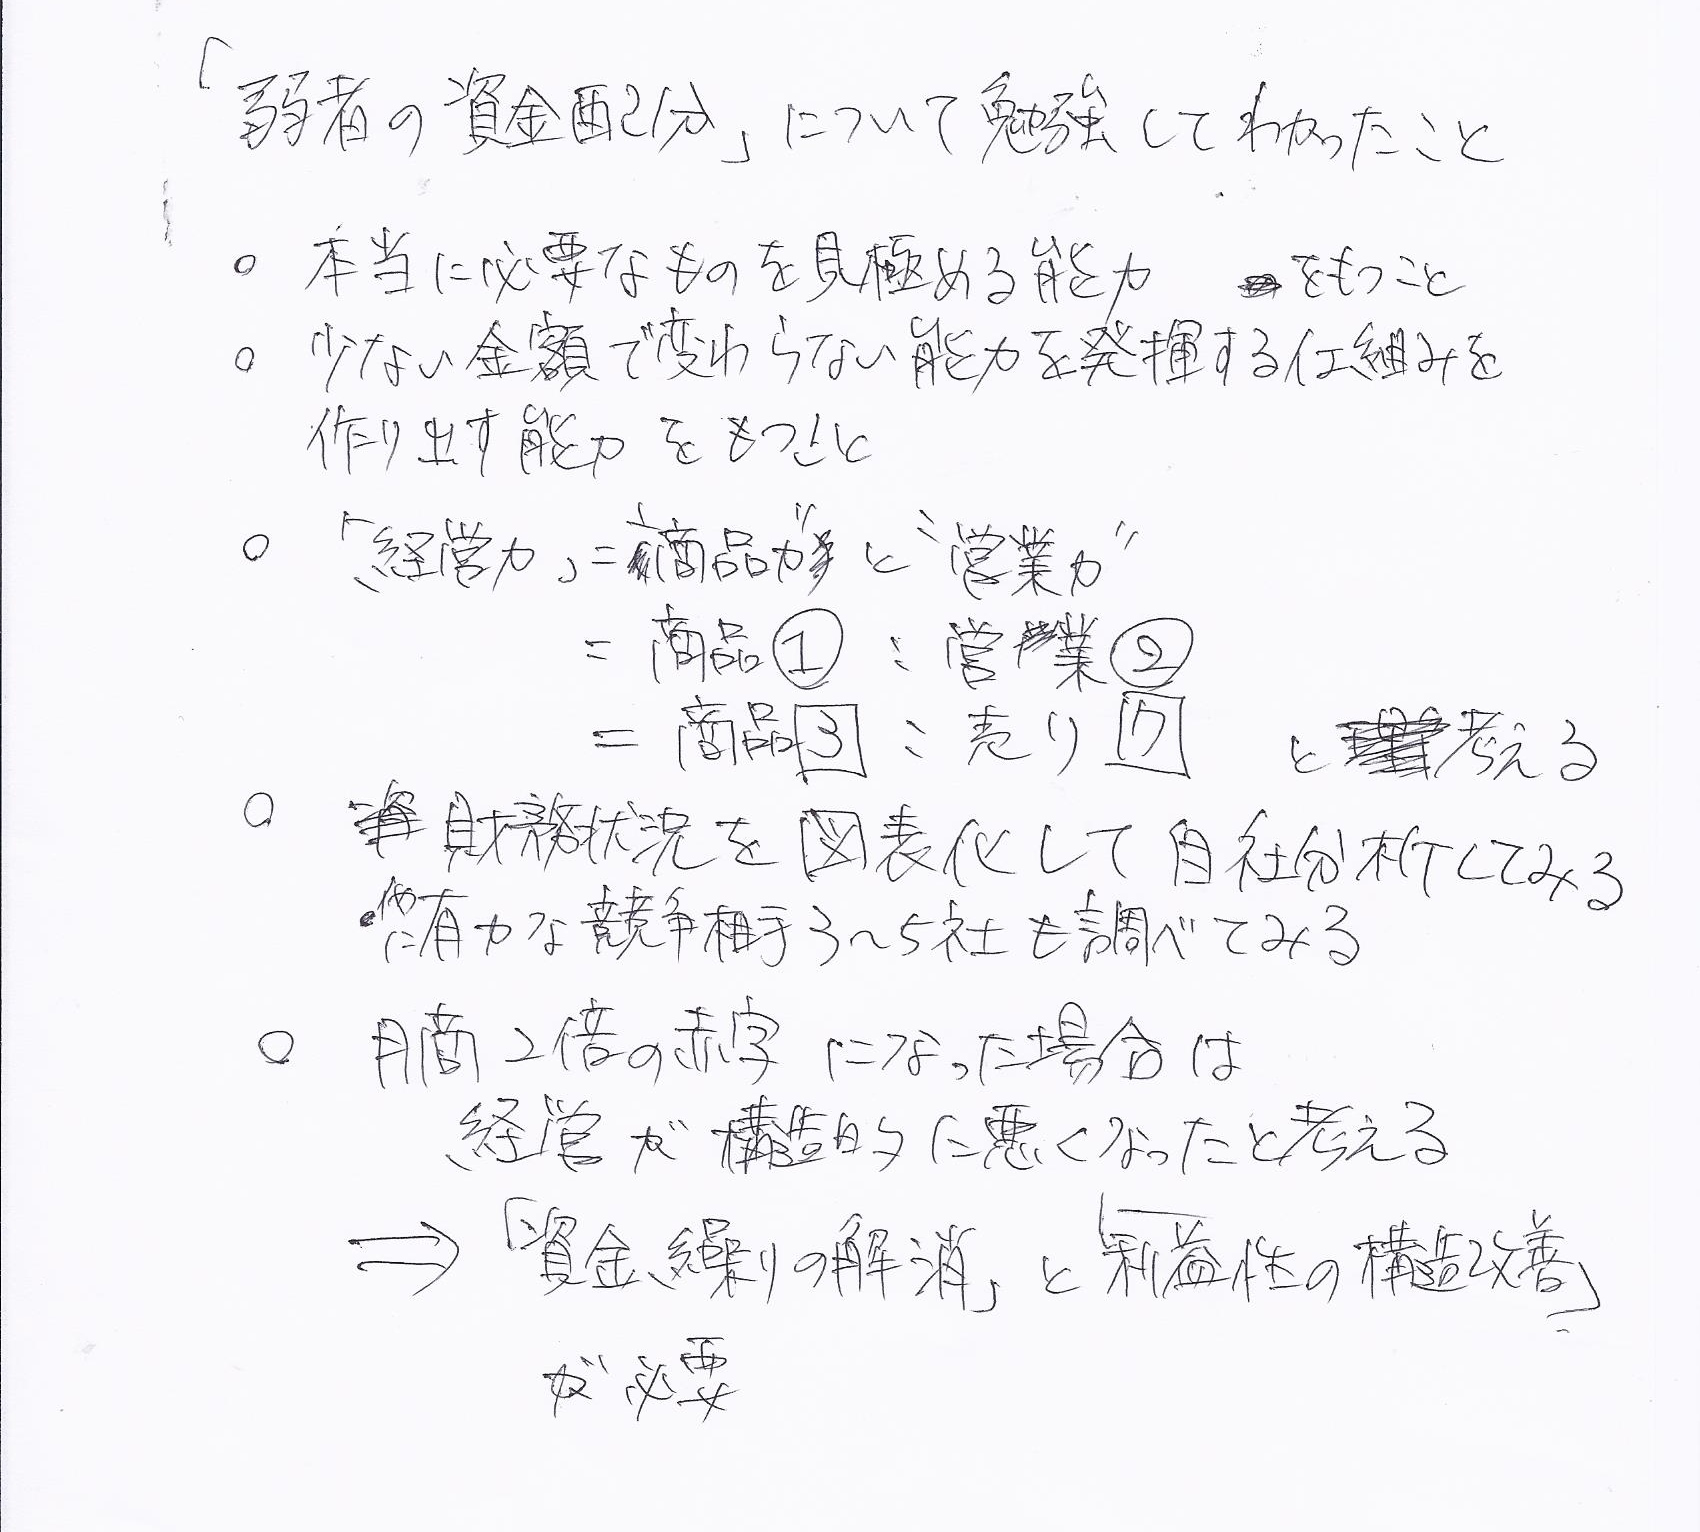 「弱者の資金配分」について勉強してわかったこと
○ 本当に必要なものを見極める能力 をもつこと
○ 少ない金額で変わらない能力を発揮する仕組みを
作り出す能力をもつこと
○ 「経営力」=“商品力”と“営業力”
= 商品① : 営業②
= 商品3 : 売り7 と考える
○ 財務状況を図表化して自社分析してみる
他に有力な競争相手3〜5社も調べてみる
○ 月商2倍の赤字になった場合は
経営が構造的に悪くなったと考える
⇒「資金繰りの解消」と「利益性の構造改善」
が必要